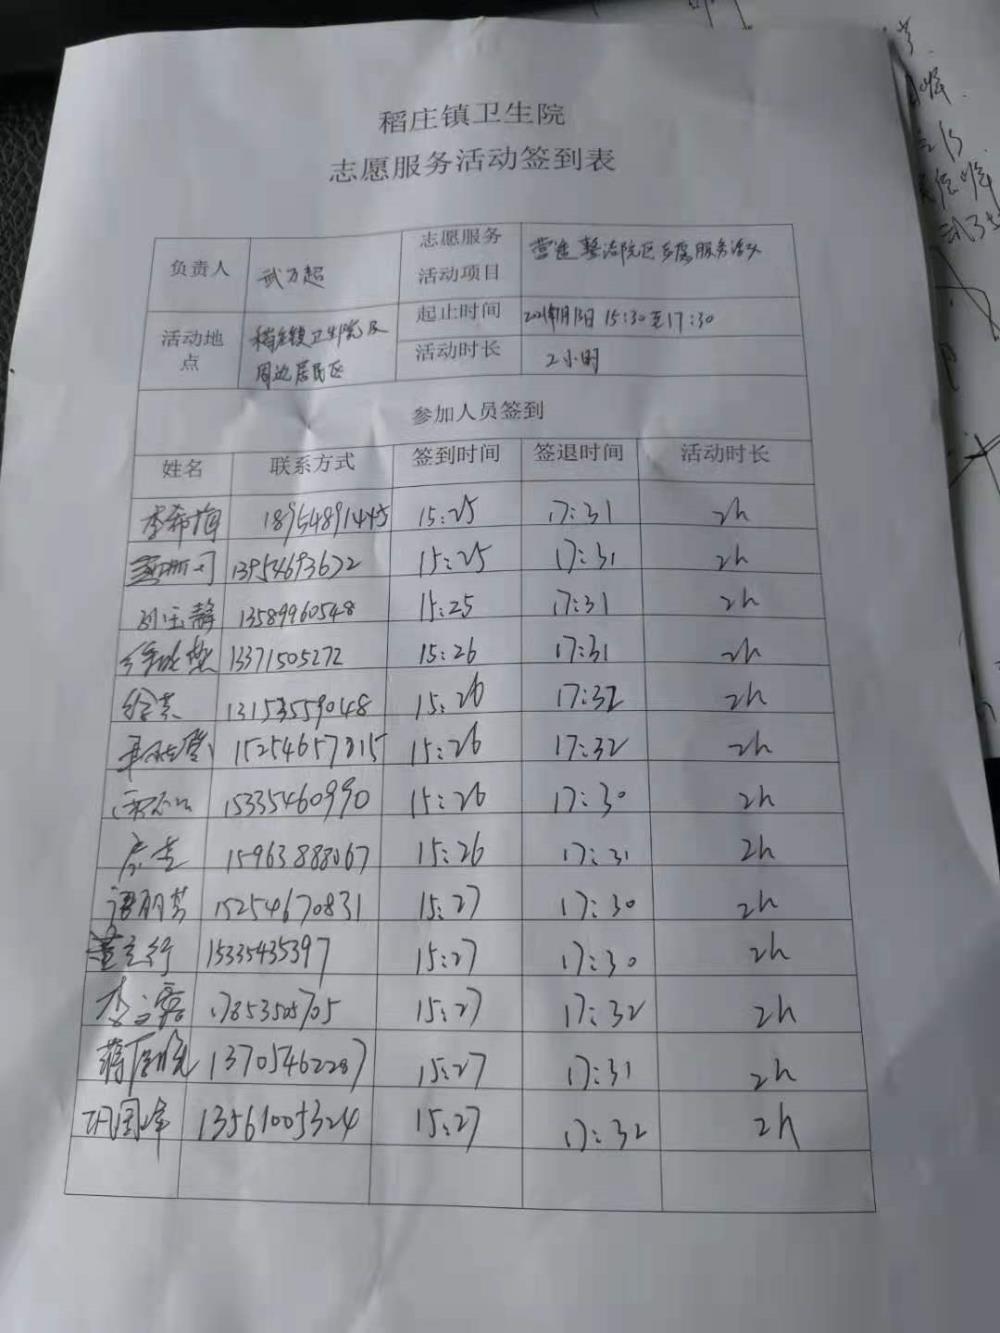 稻庄镇卫生院
志愿服务活动签到表
负责人 武万超 志愿服务活动项目 营造整洁院区志愿服务活动
活动地点 稻庄镇卫生院及周边居民区 起止时间 15:30至17:30
活动时长 2小时
参加人员签到
姓名 联系方式 签到时间 签退时间 活动时长
李希梅 18954891445 15:25 17:31 2h
13954693672 15:25 17:31 2h
刘玉静 13589960548 15:25 17:31 2h
13371505272 15:26 17:31 2h
徐芸 13153559048 15:26 17:32 2h
15254657815 15:26 17:32 2h
15335460990 15:26 17:30 2h
15963888067 15:26 17:31 2h
15254670831 15:27 17:30 2h
董立行 15335435397 15:27 17:30 2h
李 15:27 17:32 2h
蒋 13705462287 15:27 17:31 2h
巩国峰 13561005324 15:27 17:32 2h